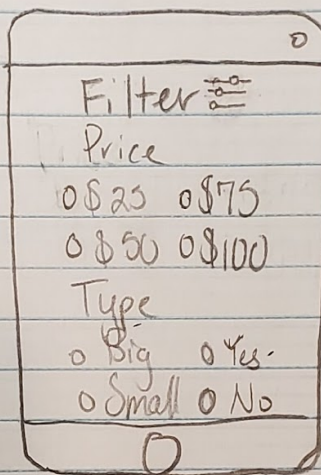 Filter
Price
$25 $75
$50 $100
Type
Big Yes
Small No